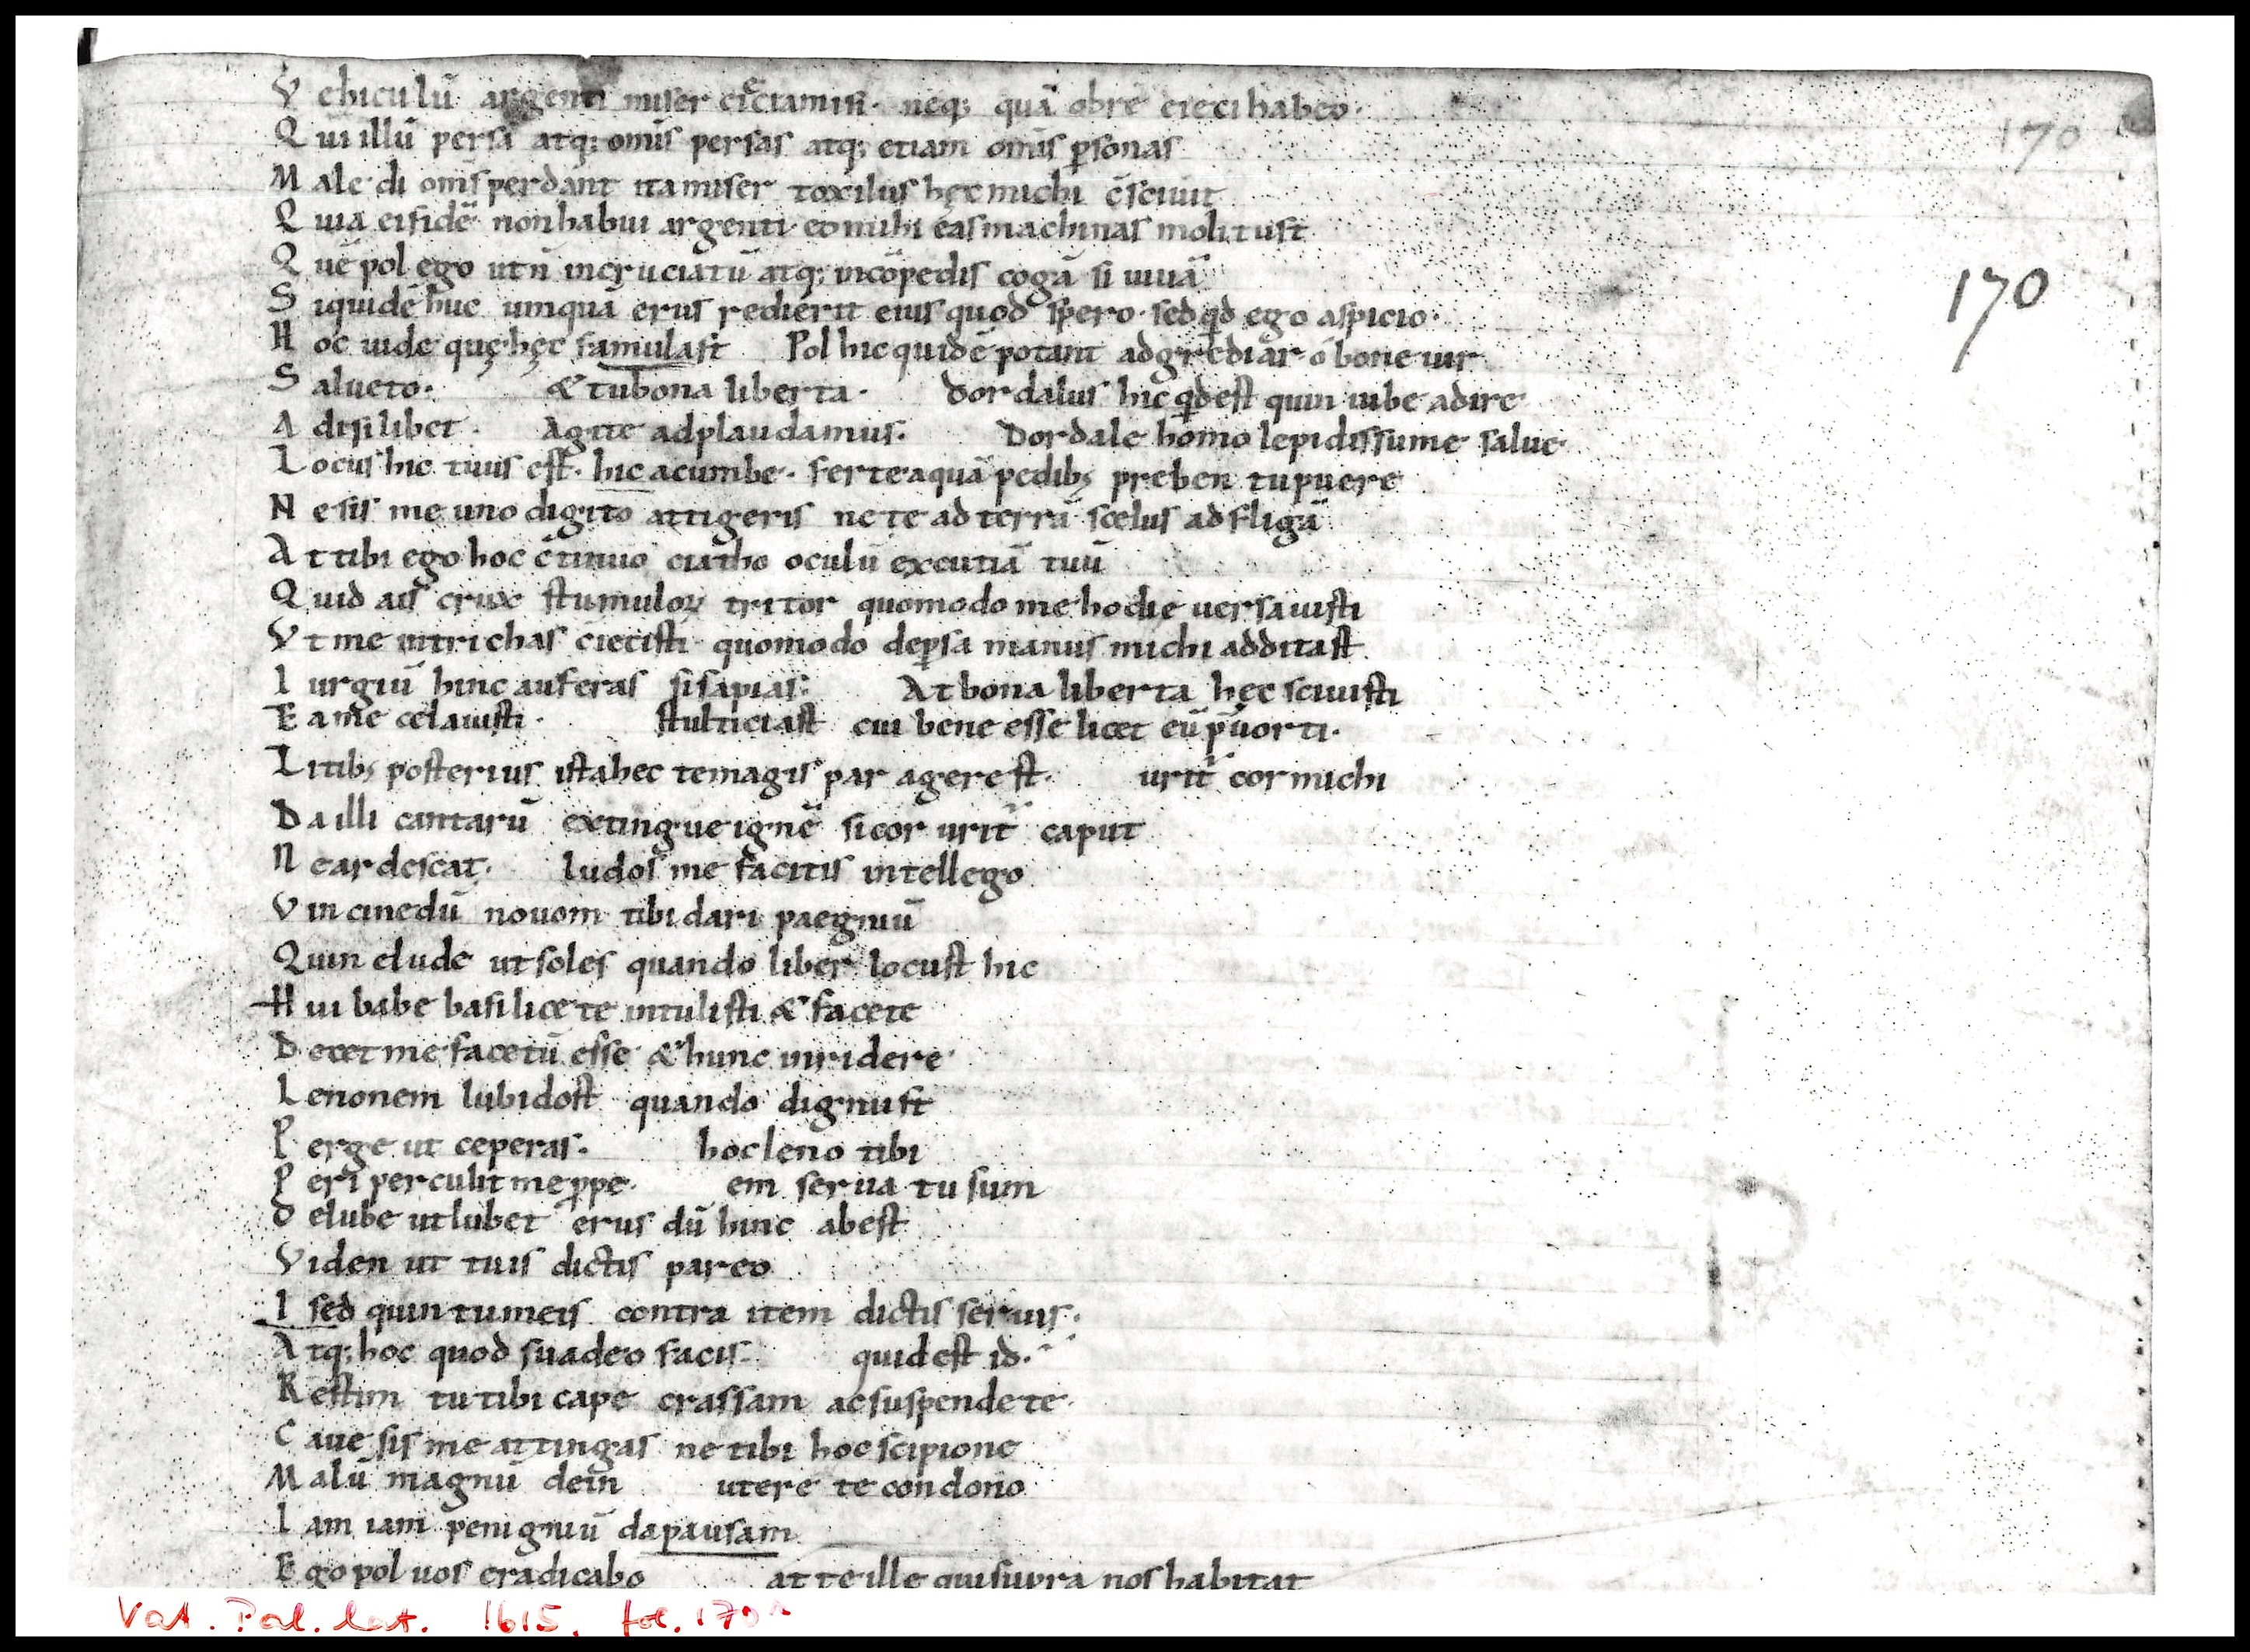 V ehiculũ argenti miser eiectamisi· neq; quã obrẽ eieci habeo·
170
Q ui illũ persã atq; om̃is persas atq; etiam om̃is ꝑsonas
M ale di om̃s perdant ita miser toxilus hęc michi c̃sciuit
Q uia ei fidẽ non habui argenti eo mihi eas machinas molitust
Q uẽ pol ego ut ñ incruciatũ atq; incõpedis cogã si uiuã
170
S iquidẽ huc umquã erus redierit eius quod spero· sed qd ego aspicio·
H oc uide quę hęc famulast Pol hic quidẽ potant adgrediar o bone uir
S alueto· & tu bona liberta· dordalus hic qdest quin iube adire
A disi libet· Agite adplaudamus· Dordale homo lepidissume salue·
L ocus hic tuus est· hic acumbe· ferte aquã pedibꝫ preben tu puere
N e sis me uno digito attigeris ne te ad terrã scelus adfligã
A t tibi ego hoc c̃tinuo ciatho oculũ excutiã tuũ
Q uid ais crux stumuloꝝ tritor quomodo me hodie uersauisti
V t me intrichas c̃iecisti quomodo deꝑsa manus michi additast
I urgiũ hinc auferas si sapias: At bona liberta hęc sciuisti
E a me celauisti· stulticiast cui bene esse licet eũ p̃uorti·
L itibꝫ posterius istahec temagis par agerest· urit᷒ cor michi
D a illi cantarũ extingue ignẽ si cor urit᷒ caput
N eardescat· ludos me facitis intellego
V in cinedũ nouom tibi dari paegniũ
Quin elude ut soles quando liber locust hic
H ui babe basilice te intulisti & facete
D ecet me facetũ esse & hunc inridere
L enonem lubidost quando dignust
P erge ut ceperas· hoc leno tibi
P eri perculit me ꝓpe· em serua tu sum
D elube ut lubet erus dũ hinc abest
Viden ut tuis dictis pareo
I sed quin tu meis contra item dictis seruis·
A tq; hoc quod suadeo facis· quid est id·
R estim tu tibi cape crassam ac suspende te·
C aue sis me attingas ne tibi hoc scipione
M alũ magnũ dem̃ utere te condono
I am iam penigniũ da pausam
E go pol uos eradicabo at te ille qui supra nos habitat
Vat. Pal. lat. 1615. fol. 170ʳ